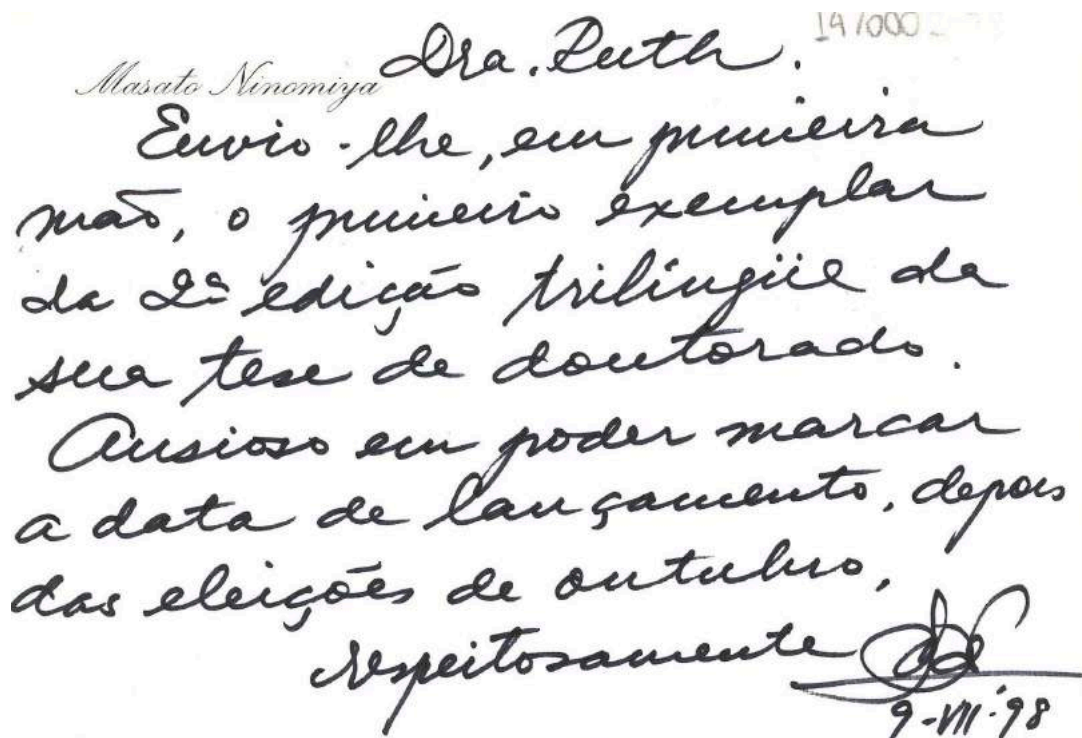 14/000
Dra. Ruth.
Masato Ninomiya
Envio-lhe, em primeira
mão, o primeiro exemplar
da 2ª edição trilíngüe da
sua tese de doutorado.
Ansioso em poder marcar
a data de lançamento, depois
das eleições de outubro,
respeitosamente
9-VII-98